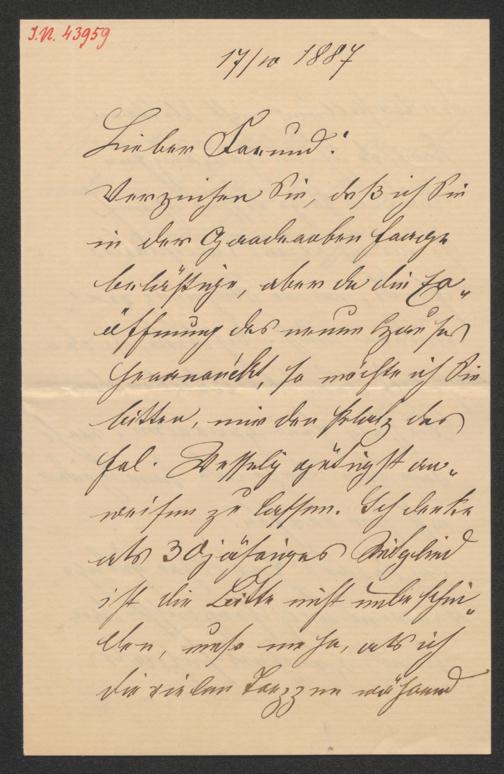 I.N. 43959
17/10 1887
Lieber Freund!
Verzeihen Sie, daß ich Sie
in der Garderoben frage
belästige, aber da die Er„
öffnung des neuen Hauses
heranrückt, so möchte ich Sie
bitten, mir den Platz des
Frl. Wessely gütigst an„
weisen zu lassen. Ich denke
als 30jähriges Mitglied
ist die Bitte nicht unbeschei„
den, umso mehr, als ich
die vielen Treppen während